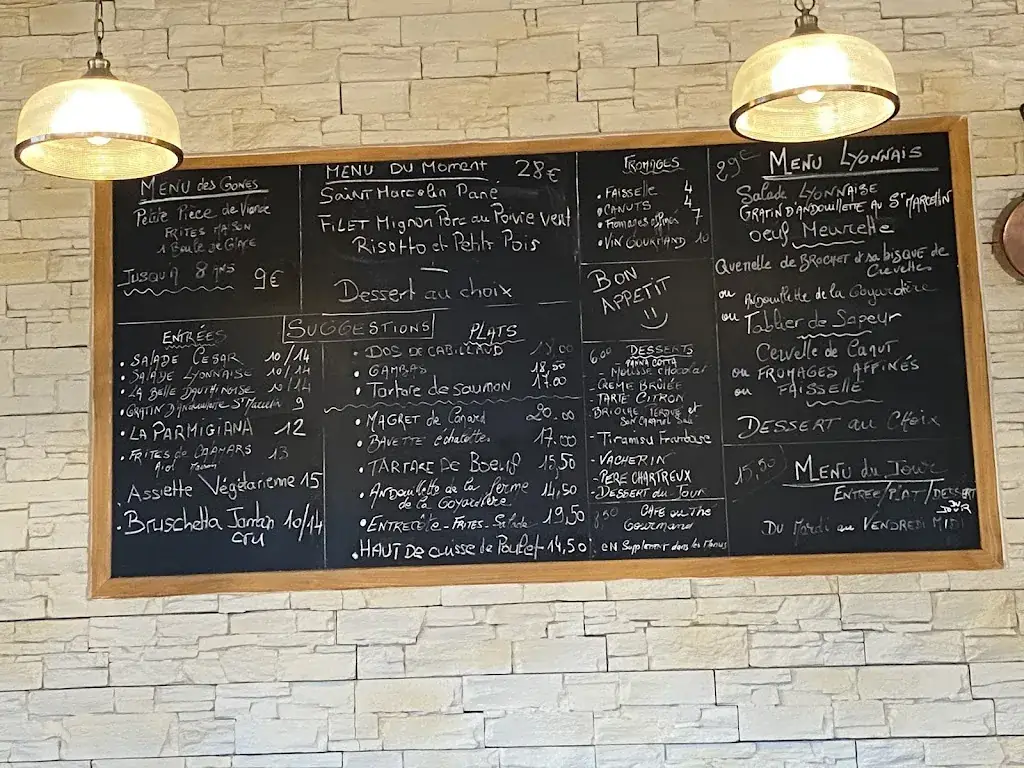 MENU des GONES
Petite Pièce de Viande
FRITES MAISON
1 Boule de Glace
Jusqu'à 8 ans 9€
MENU DU MOMENT 28€
SAINT MARCELIN Pané
FILET Mignon Porc au Poivre Vert
Risotto et Petits Pois
Dessert au choix
SUGGESTIONS
ENTRÉES
• SALADE CESAR 10/14
• SALADE LYONNAISE 10/14
• LA BELLE DAUPHINOISE 10/14
• GRATIN D'ANDOUILLETTE St Marcelin 9
• LA PARMIGIANA 12
• FRITES DE CALAMARS 13
Assiette Végétarienne 15
• Bruschetta Jambon 10/14
CRU
PLATS
• DOS DE CABILLAUD 18,00
• GAMBAS 18,50
• Tartare de saumon 17.00
• MAGRET de Canard 20.00
• BAVETTE échalotte 17.00
• TARTARE DE Boeuf 15,50
• Andouillette de la Ferme 14,50
de la Goyardière
• ENTRECÔTE - FRITES - Salade 19,50
• HAUT DE cuisse de Poulet 14,50
FROMAGES
• FAISSELLE 4
• CANUTS 4
• Fromages affinés 7
• VIN GOURMAND 10
BON
APPETIT
6,00 DESSERTS
PANNA COTTA
- MOUSSE CHOCOLAT
- CREME BRÛLÉE
- TARTE CITRON
BRIOCHE PERDUE et
SON CARAMEL Salé
- Tiramisu Framboise
- VACHERIN
- PERE CHARTREUX
- DESSERT du Jour
8,50 CAFE ou THE
Gourmand
EN Supplement dans les Menus
29€ MENU LYONNAIS
Salade LYONNAISE
GRATIN D'ANDOUILLETTE AU St MARCELLIN
Oeuf Meurette
Quenelle de BROCHET et sa BISQUE de
Crevettes
ou Andouillette de la Goyardière
ou Tablier de Sapeur
Cervelle de Canut
ou FROMAGES AFFINÉS
ou FAISSELLE
DESSERT au Choix
15,50 MENU du Jour
ENTREE/PLAT/DESSERT
DU JOUR
DU Mardi au VENDREDI MIDI